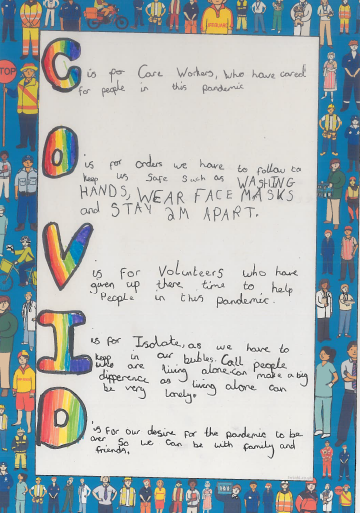 C is for Care Workers, Who have cared
for people in this pandemic
O is for orders we have to follow to
keep us safe such as WASHING
HANDS, WEAR FACE MASKS
and STAY 2M APART.
V is For Volunteers who have
given up there time to help
People in this pandemic.
I is for Isolate, as we have to
keep in our bubles. Call people
who are living alone can make a big
difference as living alone can
be very lonely.
D is for our desire for the pandemic to be
over so we can be with family and
friends.
STOP